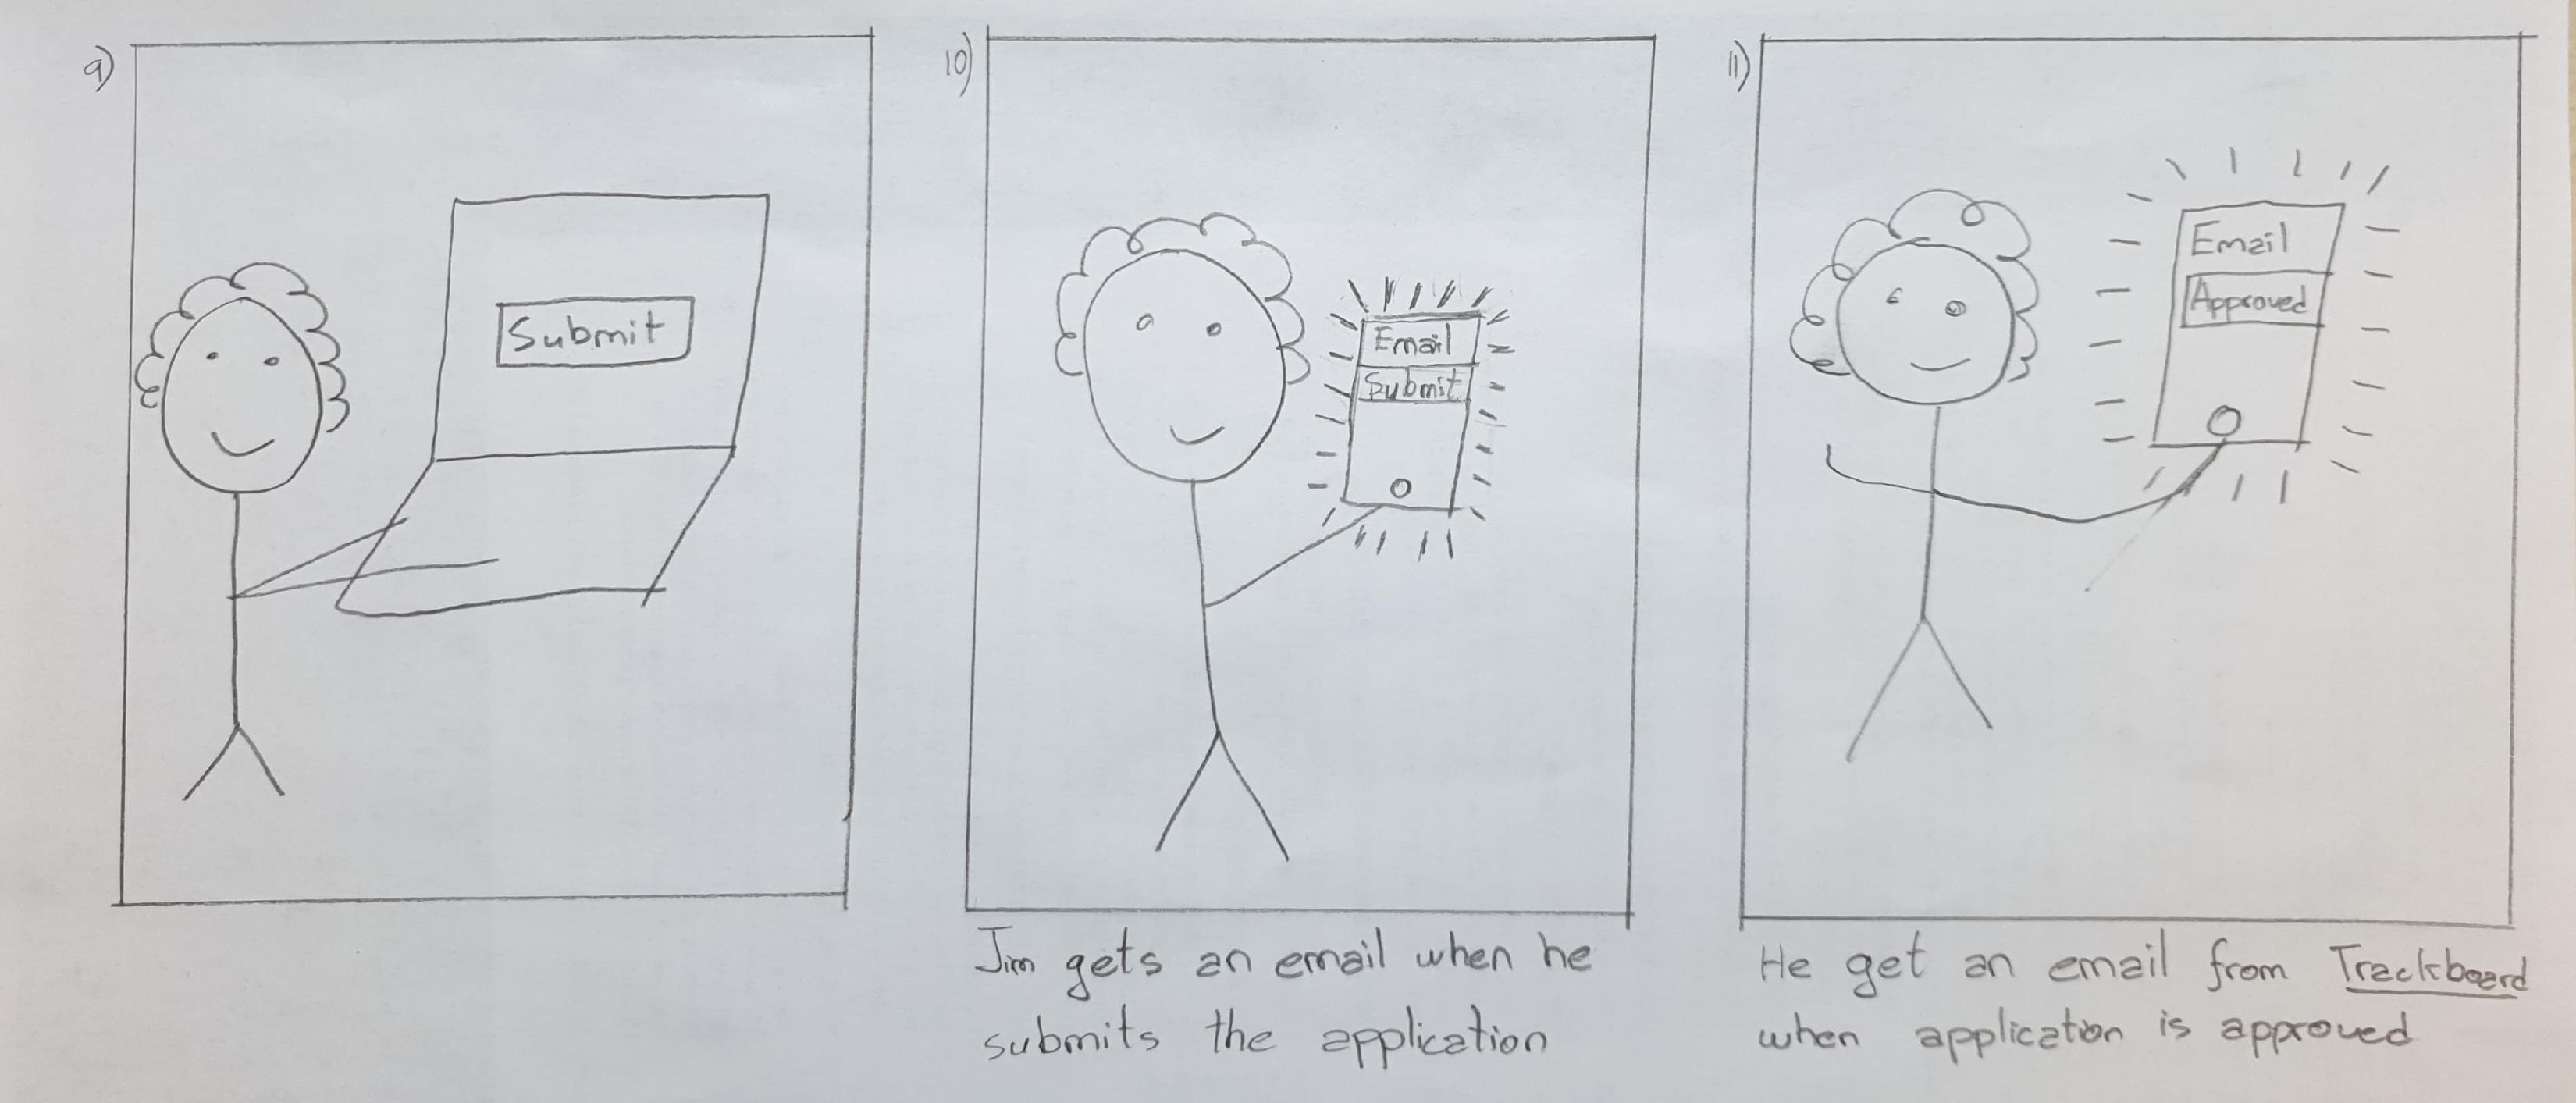 9)
Submit
10)
Email
Submit
Jim gets an email when he
submits the application
11)
Email
Approved
He get an email from Trackboard
when application is approved